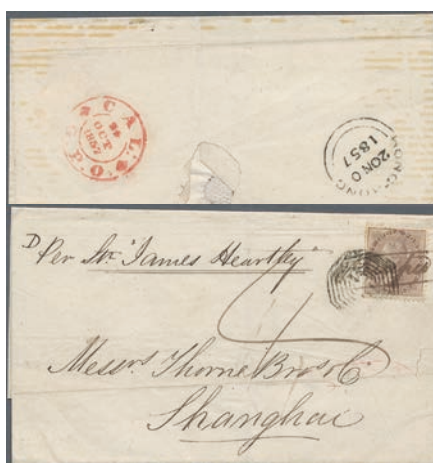 CAL.
OCT
1857
G.P.O.
HONG KONG
20 NO
1857
D Per Str. "James Heartley"
4
Messrs. Thorne Bros & Co
Shanghai